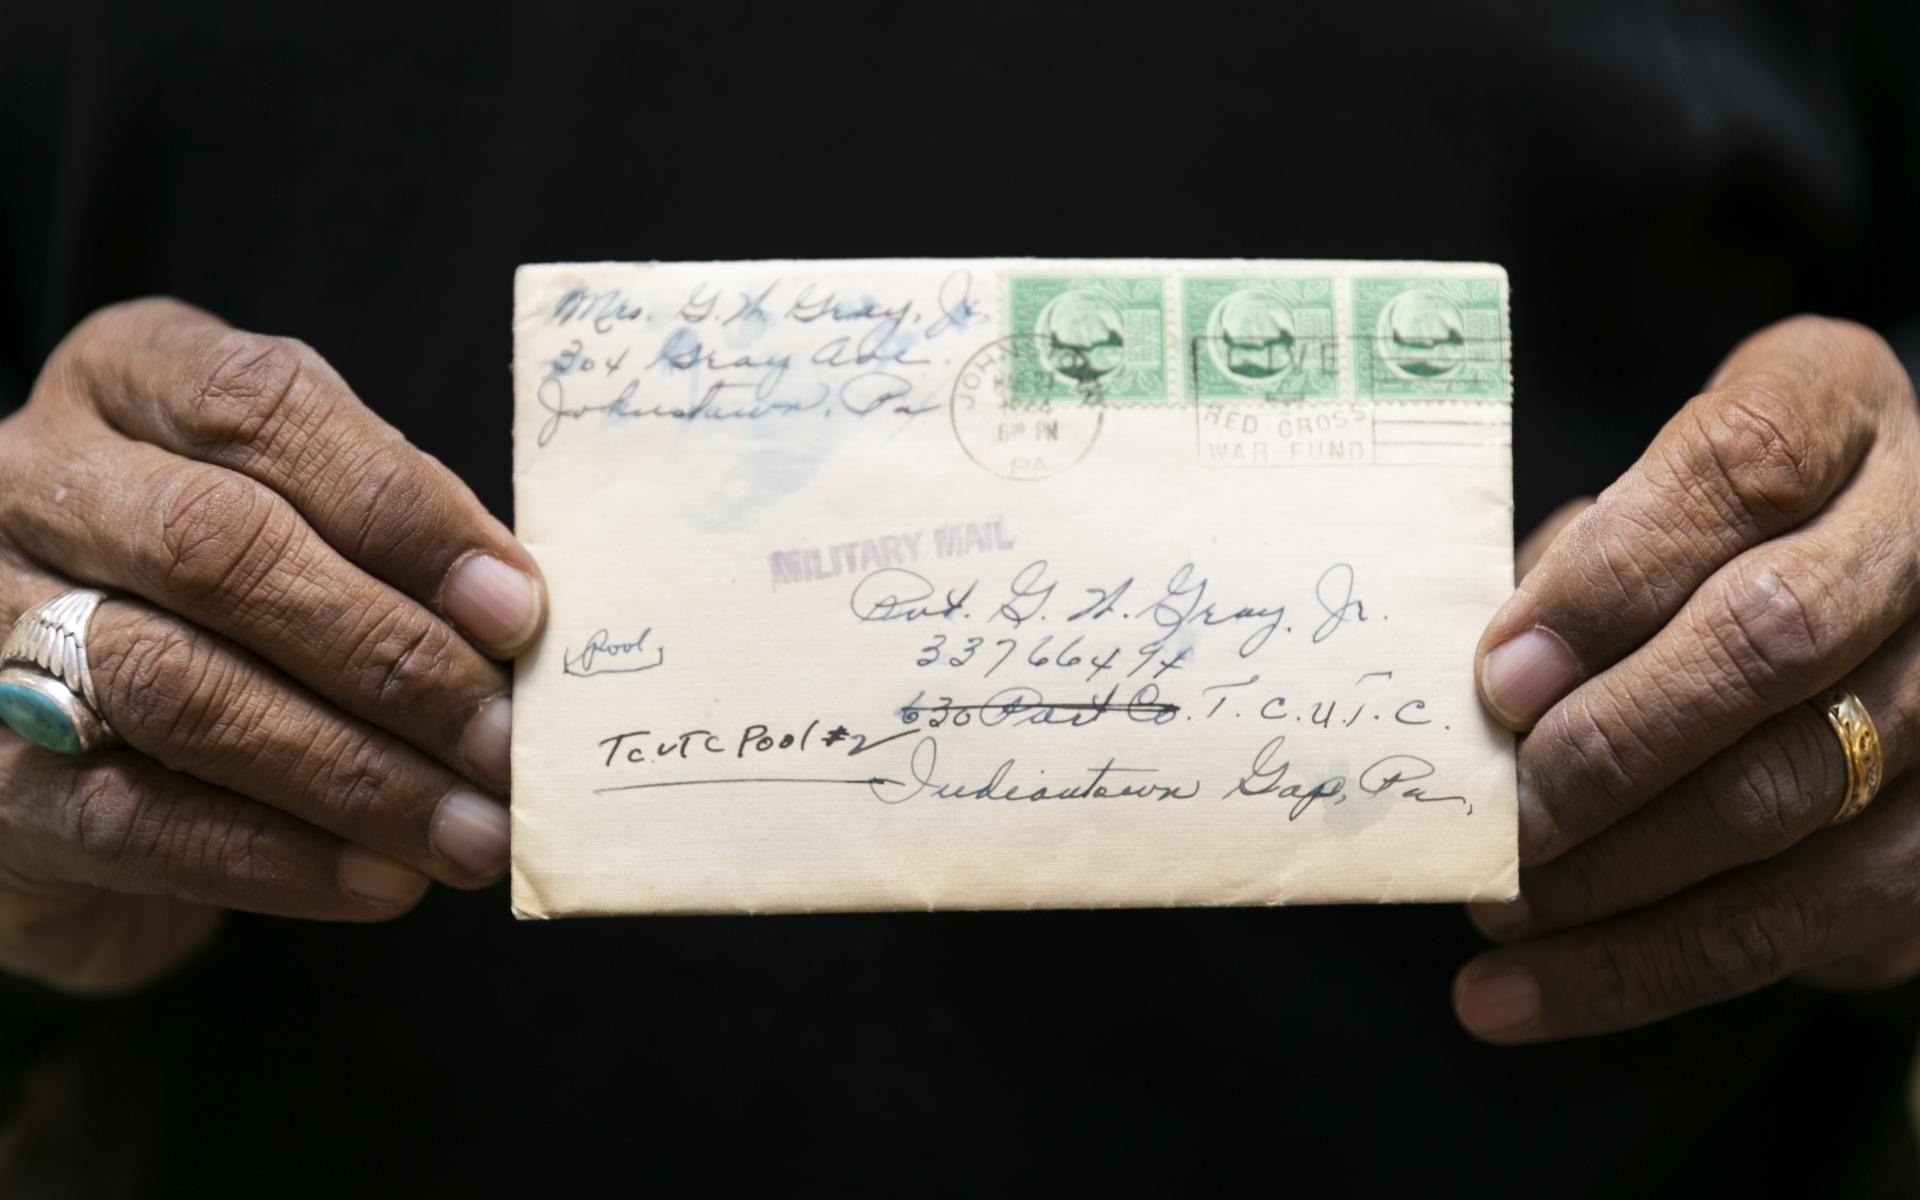 Mrs. G. H. Gray, Jr.
304 Gray Ave.
Johnstown, Pa
6 30 PM
PA.
GIVE
RED CROSS
WAR FUND
MILITARY MAIL
Pvt. G. H. Gray, Jr.
33766494
Pool
630 Port Co. T.C.U.T.C.
TCUTC Pool #2
Indiantown Gap, Pa,